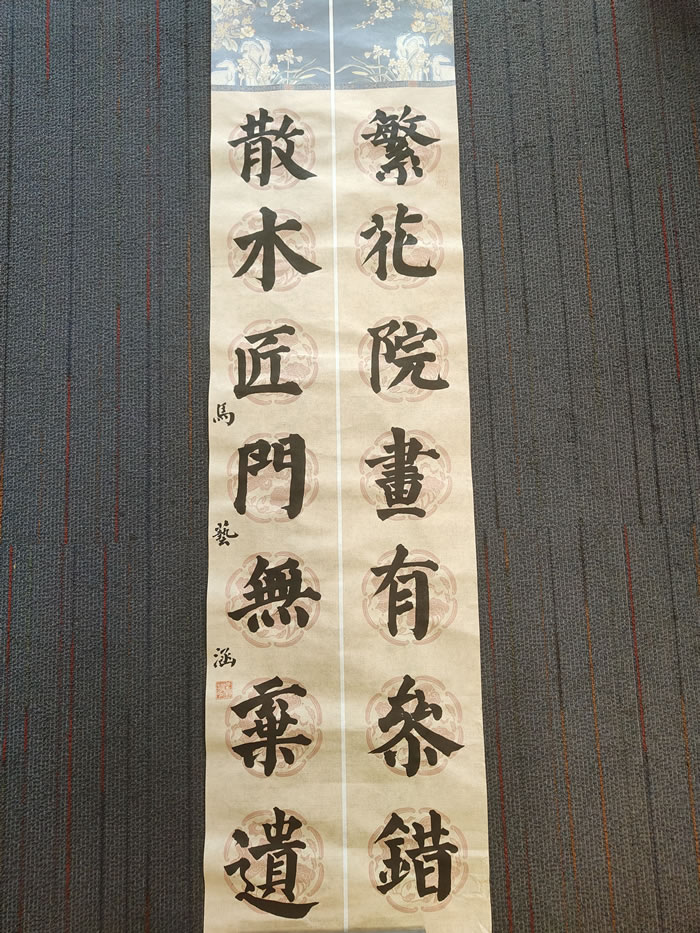 繁花院畫有叅錯
散木匠門無棄遺
馬藝涵